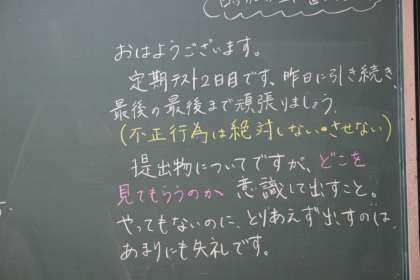 おはようございます。
定期テスト2日目です。昨日に引き続き、
最後の最後まで頑張りましょう。
(不正行為は絶対しない・させない)
提出物についてですが、どこを
見てもらうのか、意識して出すこと。
やってもないのに、とりあえず出すのは、
あまりにも失礼です。